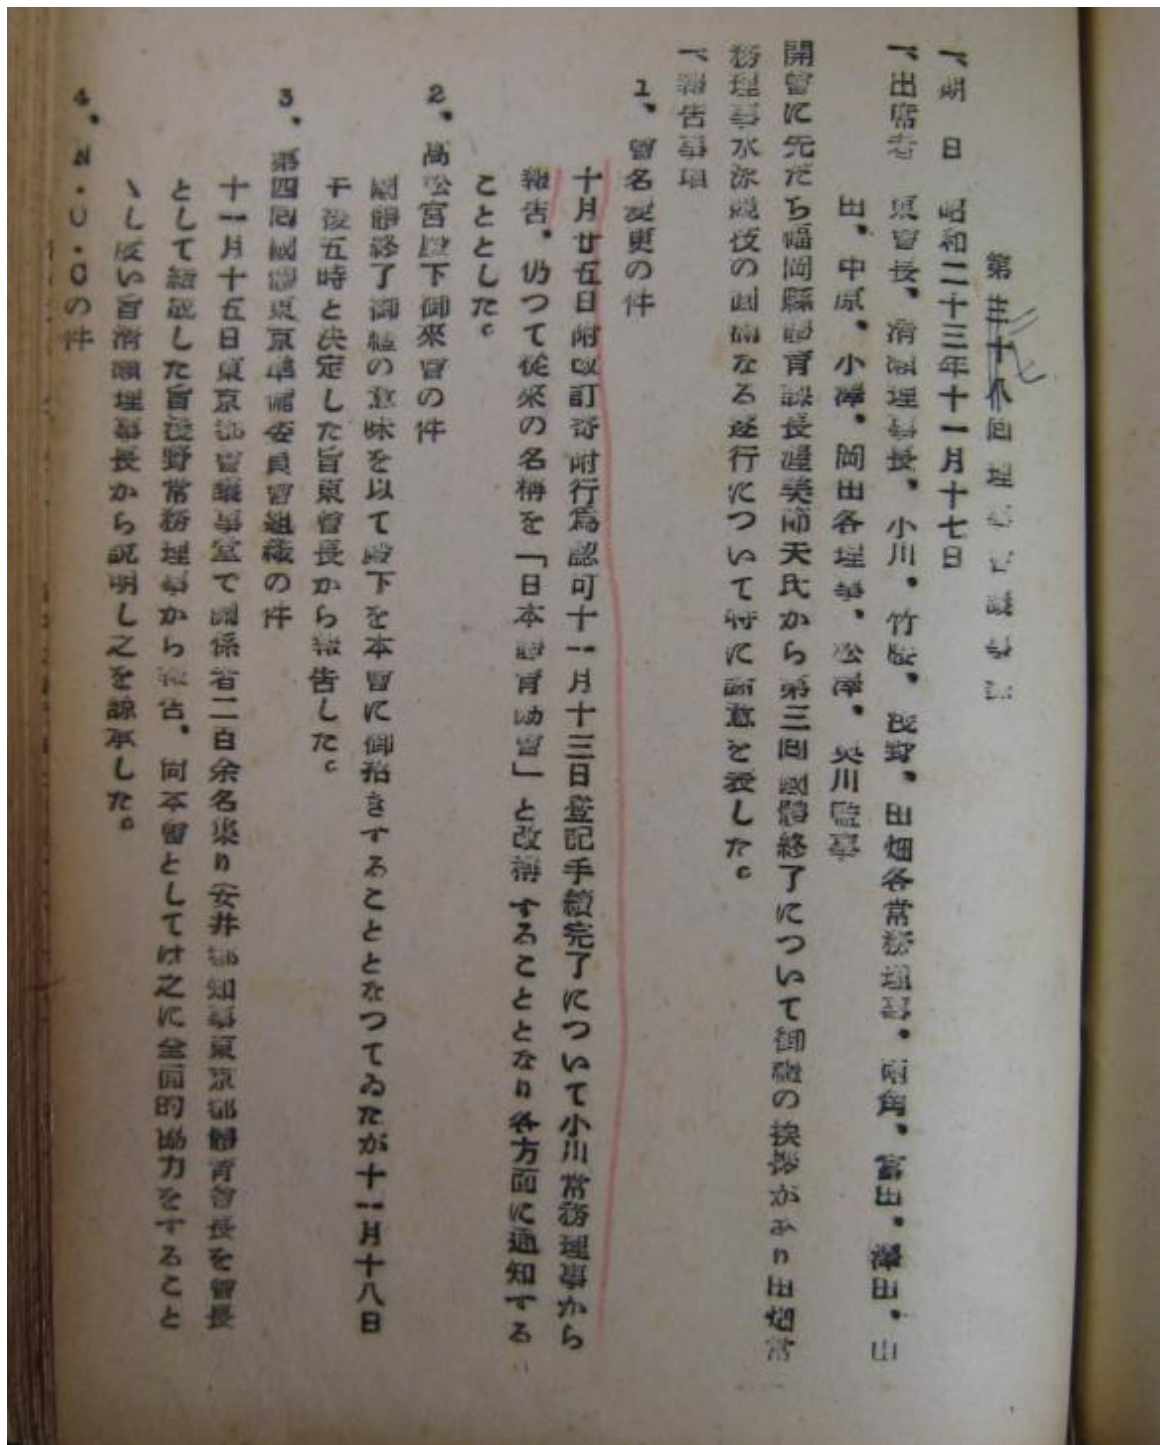 第三十八回理事会議事録
一、期日 昭和二十三年十一月十七日
一、出席者 東會長、清瀬理事長、小川、竹腰、浅野、田畑各常務理事、両角、宮田、澤田、山
田、中原、小澤、岡田各理事、松澤、奥川監事
開會に先だち福岡縣體育課長渥美節夫氏から第三回國體終了について御礼の挨拶があり田畑常
務理事水泳競技の圓滿なる遂行について特に謝意を表した。
一、報告事項
1、會名変更の件
十月廿五日附改訂寄附行為認可十一月十三日登記手續完了について小川常務理事から
報告、仍つて従來の名稱を「日本體育協會」と改稱することとなり各方面に通知する
こととした。
2、高松宮殿下御來會の件
國體終了御礼の意味を以て殿下を本會に御招きすることとなつてゐたが十一月十八日
午後五時と決定した旨東會長から報告した。
3、第四回國體東京準備委員會組織の件
十一月十五日東京都會議事堂で関係者二百余名集り安井都知事東京都體育會長を會長
として結成した旨浅野常務理事から報告、尚本會としては之に全面的協力をすること
ゝし度い旨清瀬理事長から説明し之を諒承した。
4、N・O・Cの件